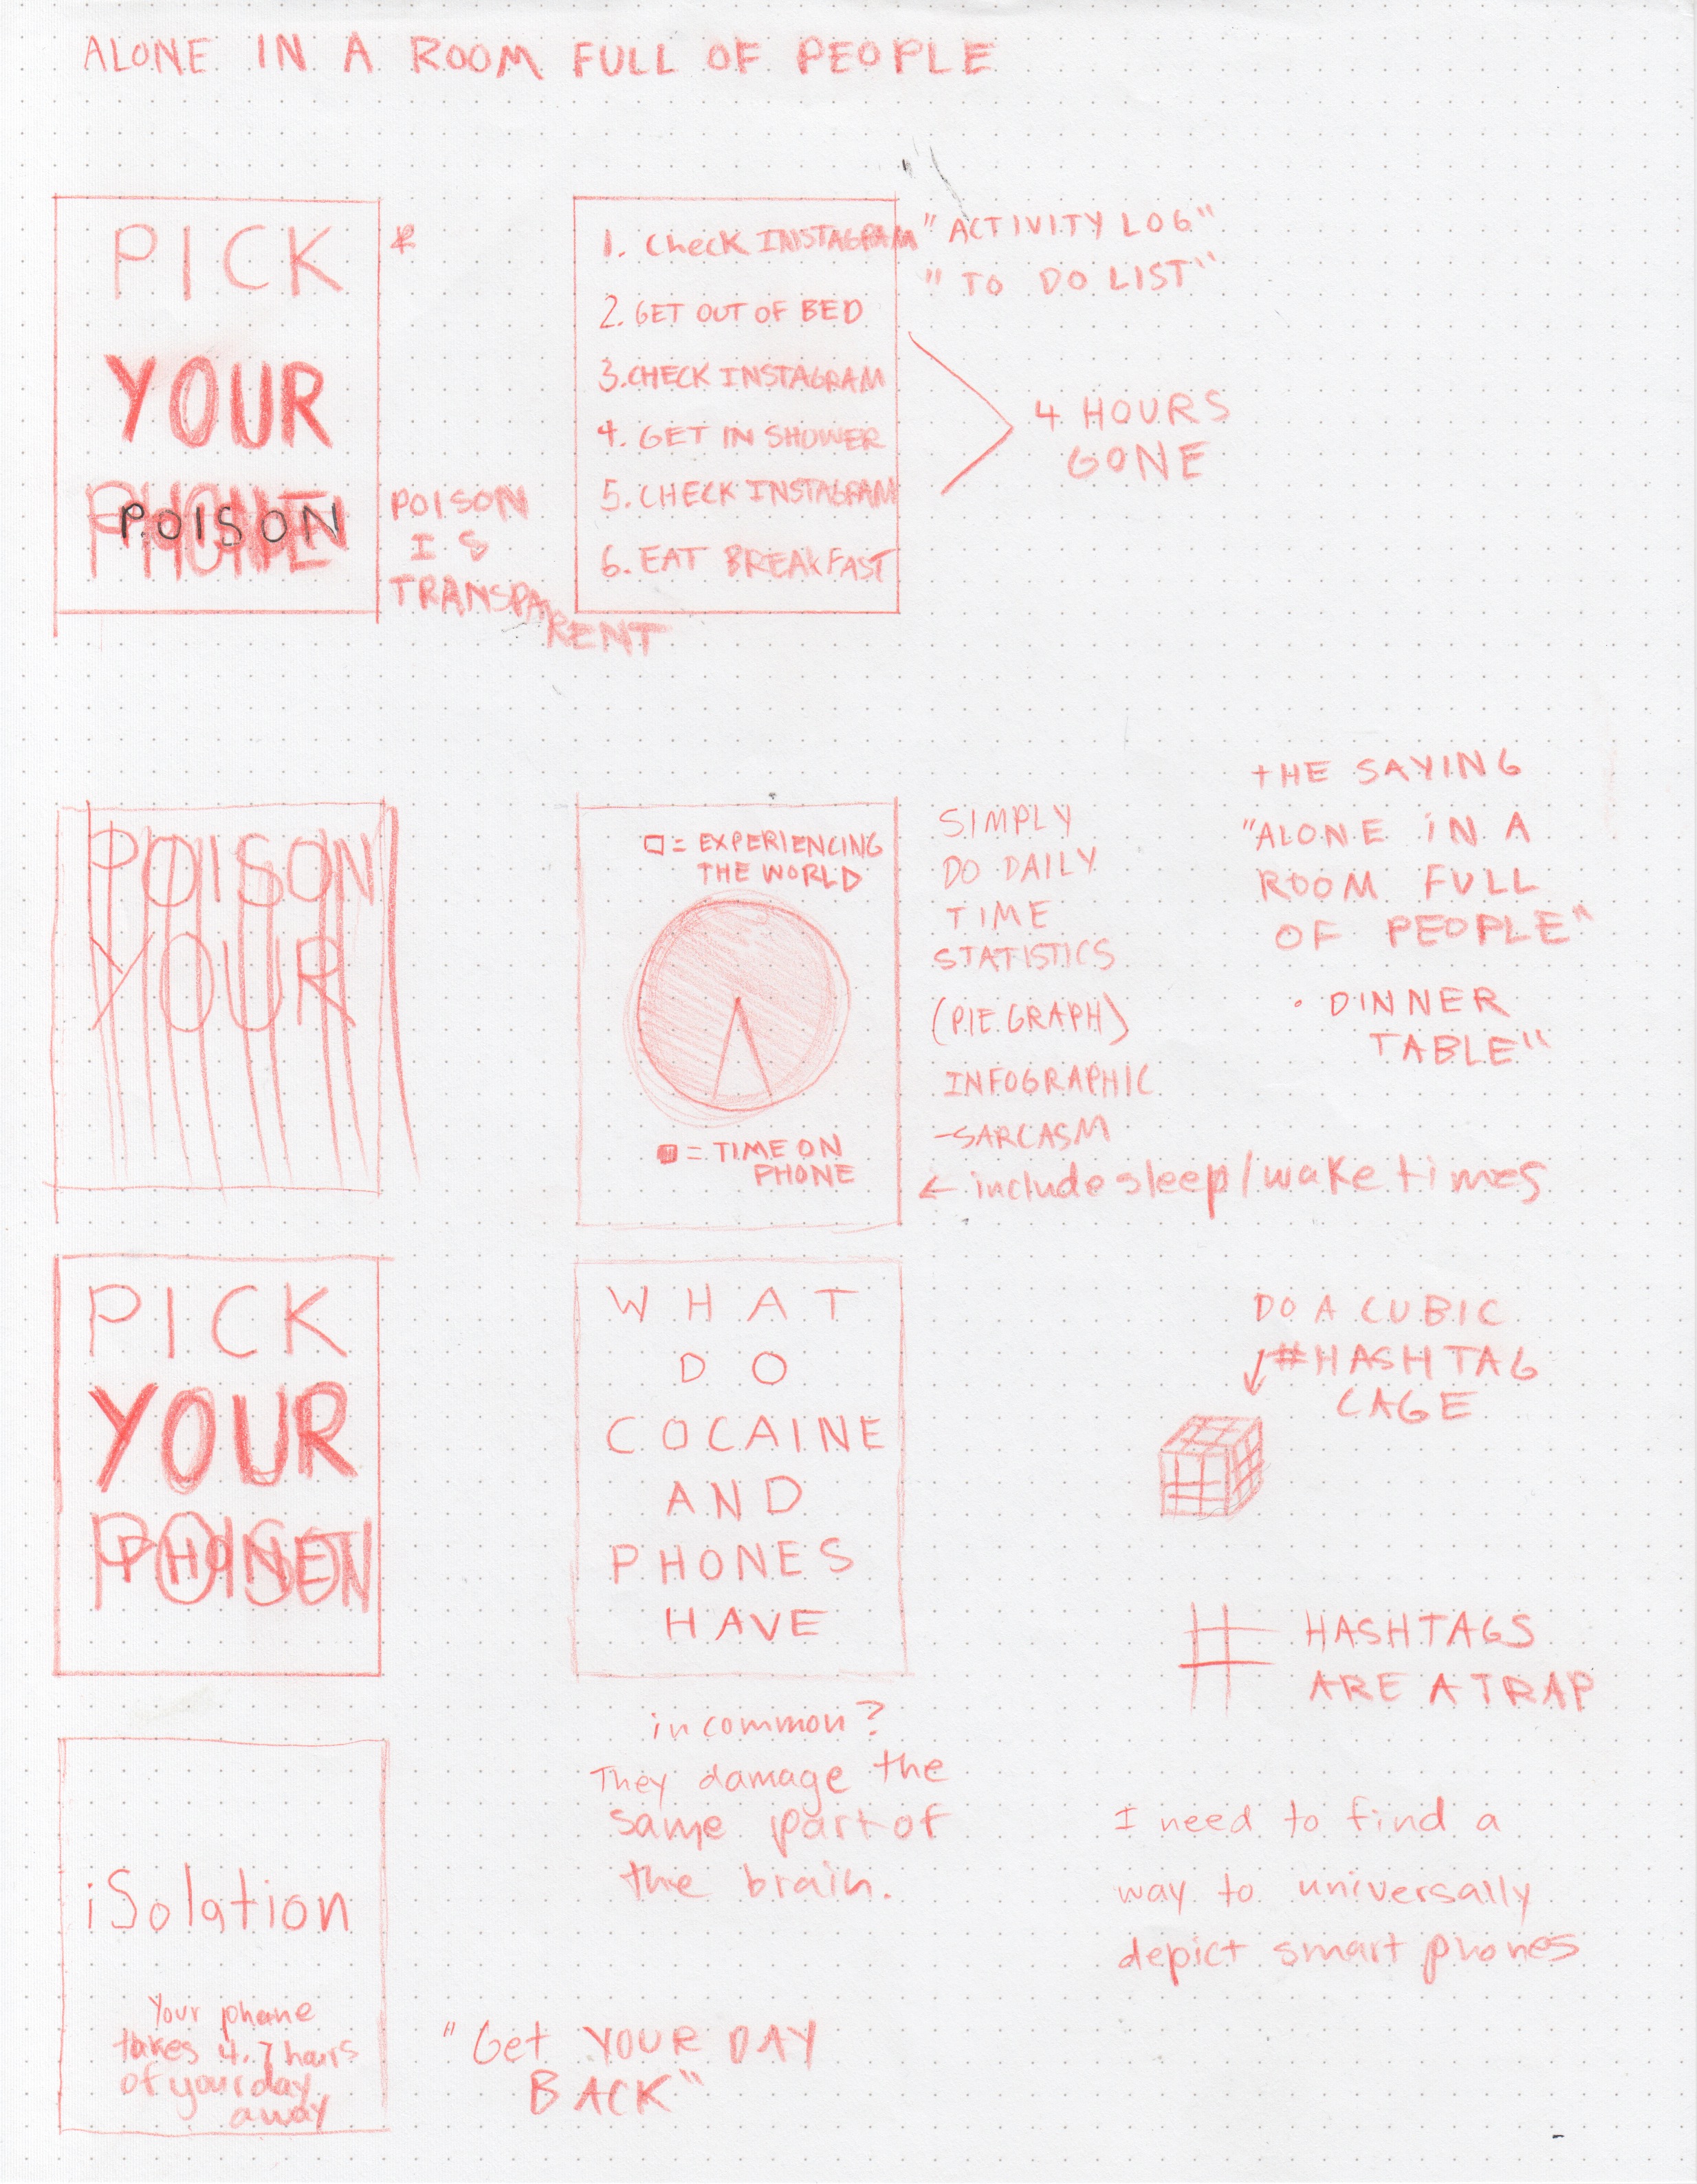 ALONE IN A ROOM FULL OF PEOPLE
PICK
YOUR
PHONE
POISON
*
POISON
IS
TRANSPARENT
1. Check INSTAGRAM
2. GET OUT OF BED
3. CHECK INSTAGRAM
4. GET IN SHOWER
5. CHECK INSTAGRAM
6. EAT BREAKFAST
"ACTIVITY LOG"
"TO DO LIST"
4 HOURS
GONE
POISON
YOUR
□ = EXPERIENCING
THE WORLD
■ = TIME ON
PHONE
SIMPLY
DO DAILY
TIME
STATISTICS
(PIE GRAPH)
INFOGRAPHIC
-SARCASM
← include sleep/wake times
THE SAYING
"ALONE IN A
ROOM FULL
OF PEOPLE"
• DINNER
TABLE"
PICK
YOUR
POISON
PHONE
WHAT
DO
COCAINE
AND
PHONES
HAVE
in common?
They damage the
same part of
the brain.
DO A CUBIC
#HASHTAG
CAGE
# HASHTAGS
ARE A TRAP
iSolation
Your phone
takes 4.7 hours
of your day
away
"Get YOUR DAY
BACK"
I need to find a
way to universally
depict smart phones